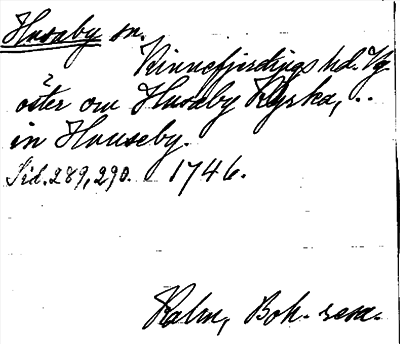 Husaby sn.
Kinnefjerdings hd. Vg.
öster om Husaby Kyrka, ..
in Houseby.
Sid. 289, 290. 1746.
Kalm, Boh. resa.